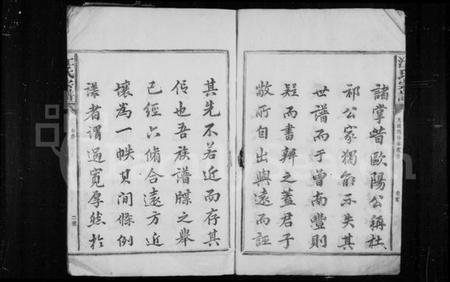 諸掌昔歐陽公稱杜
祁公家獨能不失其
世譜而于曾南豐則
疑而書辨之蓋君子
敬所自出與遠而誣
其先不若近而存其
信也吾族譜牒之舉
已經六脩合遠方近
壞為一帙其間條例
議者謂過寬厚然於
汪氏宗譜